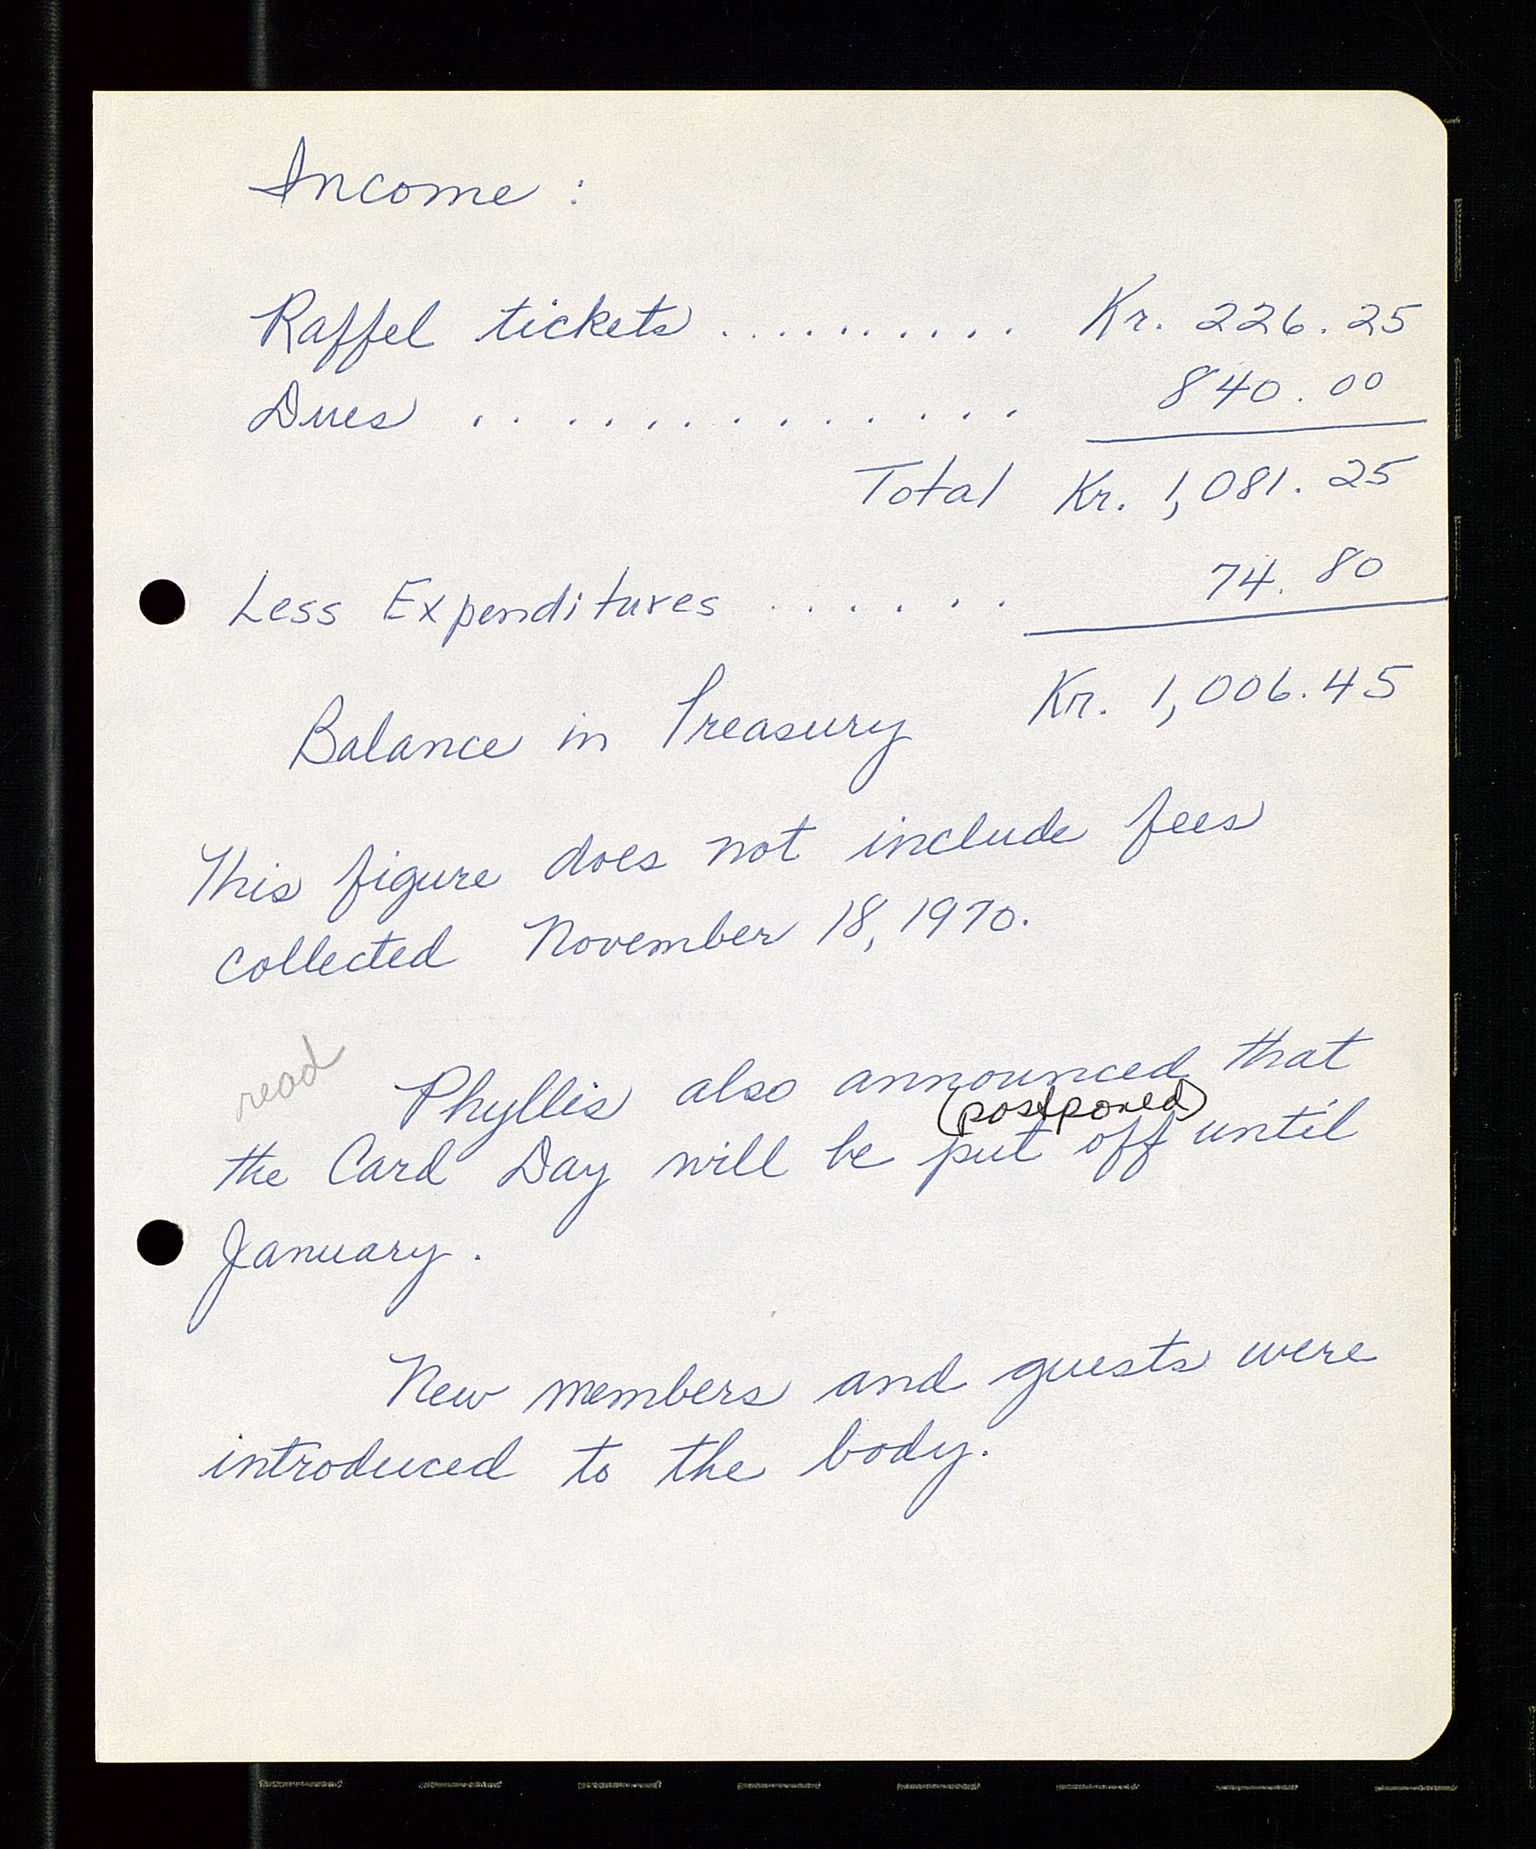 Income :
Raffel tickets .......... Kr. 226.25
Dues .............. 840.00
Total Kr. 1,081.25
Less Expenditures ...... 74.80
Balance in Treasury Kr. 1,006.45
This figure does not include fees
collected November 18, 1970.
read
Phyllis also announced that
(postponed)
the Card Day will be put off until
January.
New members and guests were
introduced to the body.